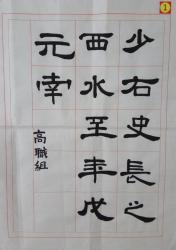 1
少右史長之
西水至年戊
元幸
高職組